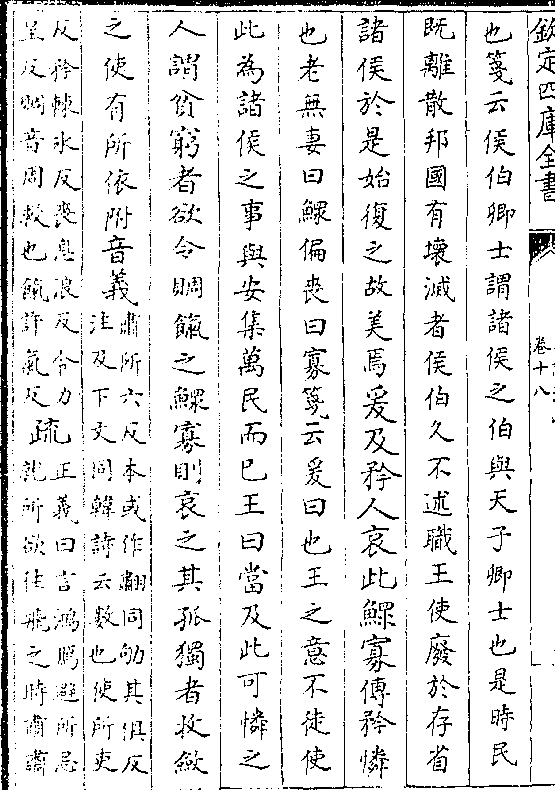 欽定四庫全書
卷十八
也箋云侯伯卿士謂諸侯之伯與天子卿士也是時民
既離散邦國有壞滅者侯伯久不述職王使廢於存省
諸侯於是始復之故美焉爰及矜人哀此鰥寡傳矜憐
也老無妻曰鰥偏喪曰寡箋云爰曰也王之意不徒使
此為諸侯之事與安集萬民而已王曰當及此可憐之
人謂貧窮者欲令賙餼之鰥寡則哀之其孤獨者收斂
之使有所依附音義肅所六反本或作翽同劬其俱反
注及下文同韓詩云數也使所吏
反矜棘冰反喪息浪反令力
呈反賙音周救也餼許氣反疏正義曰言鴻鴈避所忌
就所欲往飛之時肅肅